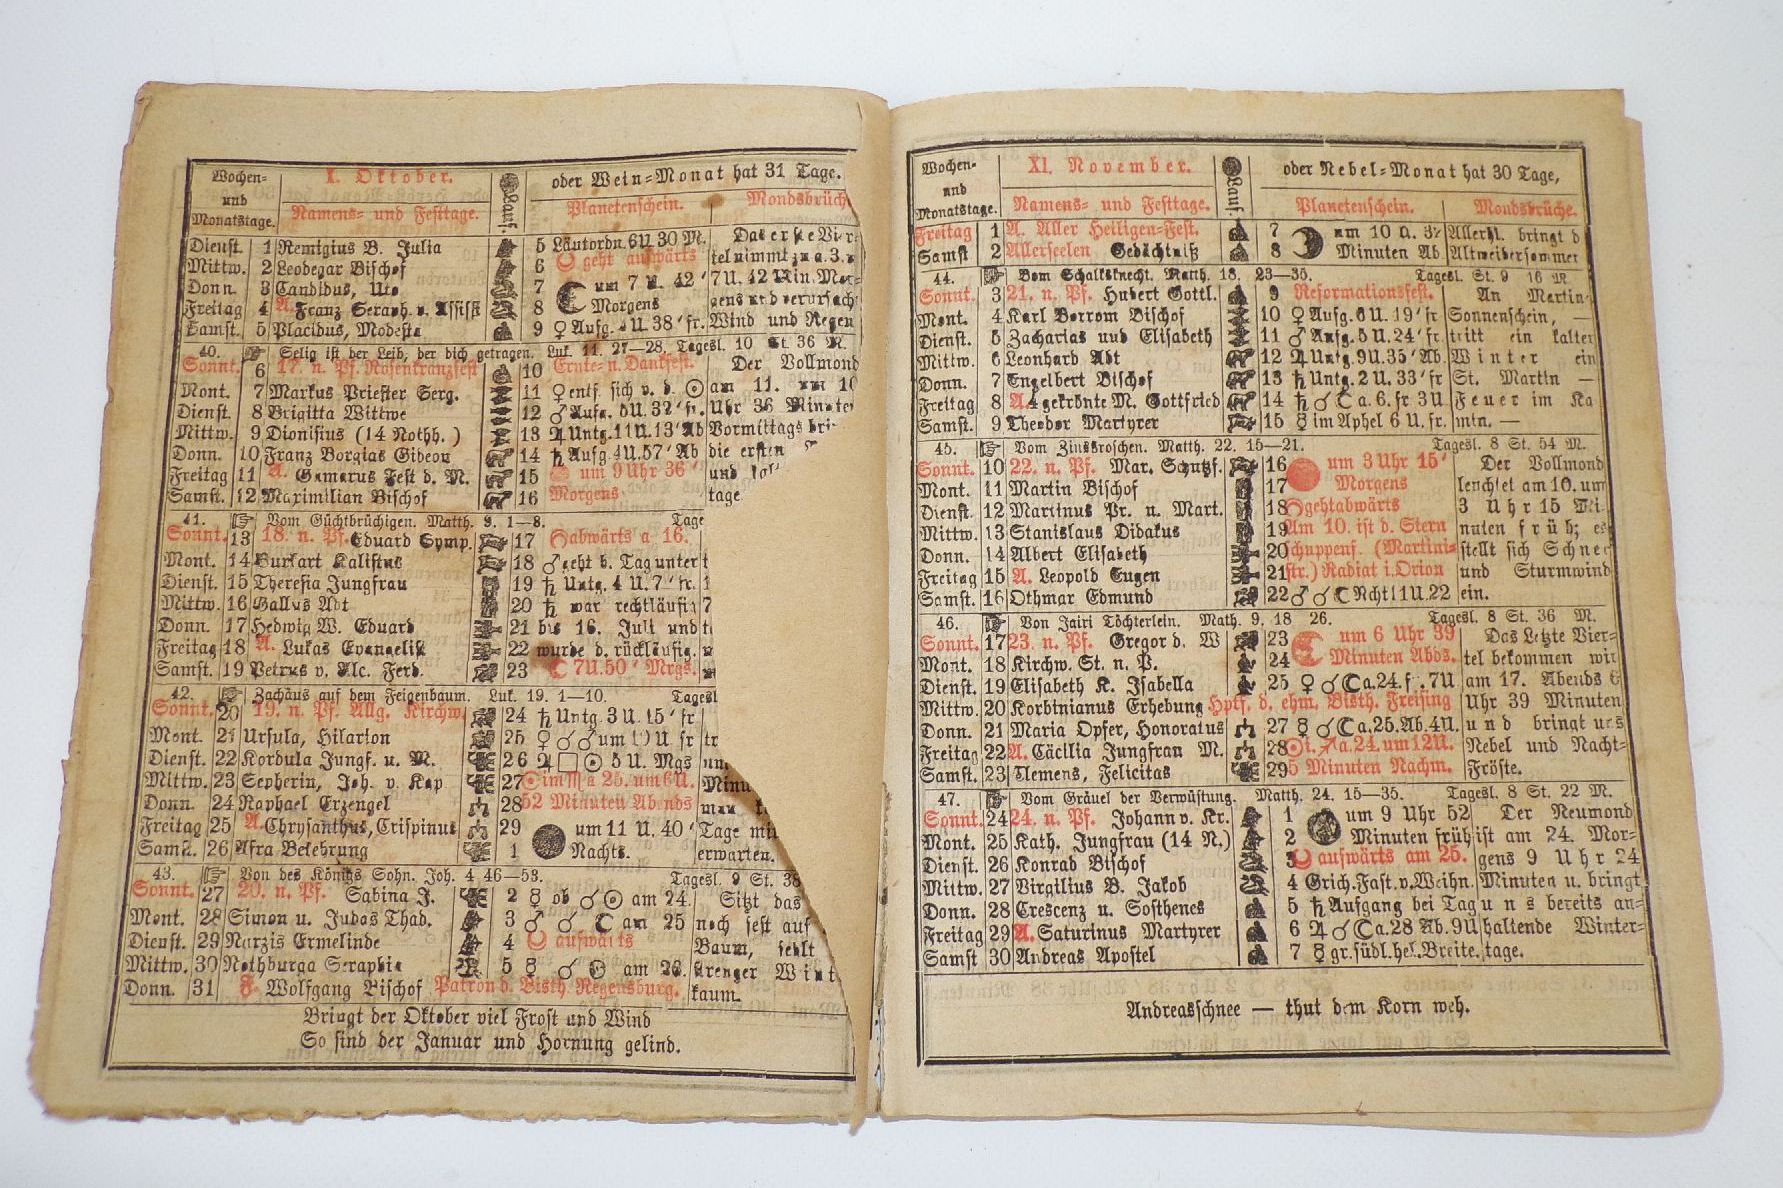 Wochen-
und
Monatstage.
X. Oktober.
Namens- und Festtage.
oder Wein-Monat hat 31 Tage.
Planetenschein.
Mondsbrüch
Dienst. 1 Remigius B. Julia 5 Läutordn. 6 U 30 M. Das erste Vier-
Mittw. 2 Leodegar Bischof 6 geht aufwärts tel nimmt zu a. 3.
Donn. 3 Candidus, Uto 7 um 7 U. 42' 7 U. 42 Min. Mor-
Freitag 4 A. Franz Seraph v. Assissi 8 Morgens gens und verursach
Samst. 5 Placidus, Modesta 9 ♀ Aufg. 4 U. 38' fr. Wind und Regen
40. Selig ist der Leib, der dich getragen. Luk. 11. 27—28. Tagesl. 10 St. 36 M.
Sonnt. 6 17. n. Pf. Rosenkranzfest 10 Ernte- n. Dankfest. Der Vollmond
Mont. 7 Markus Priester Serg. 11 ♀ entf. sich v. d. ☉ am 11. um 10
Dienst. 8 Brigitta Wittwe 12 ♂ Aufg. 5 U. 32' fr. Uhr 36 Minuten
Mittw. 9 Dionisius (14 Nothh.) 13 ♃ Untg. 11 U. 13' Ab Vormittags brin
Donn. 10 Franz Borgias Gideon 14 ♄ Aufg. 4 U. 57' Ab die ersten
Freitag 11 A. Gemarus Fest d. M. 15 um 9 Uhr 36' und
Samst. 12 Maximilian Bischof 16 Morgens tage
41. Vom Güchtbrüchigen. Matth. 9. 1—8. Tage
Sonnt. 13 18. n. Pf. Eduard Symp. 17 abwärts a. 16.
Mont. 14 Burkart Kalistus 18 ♂ geht b. Tag unter
Dienst. 15 Theresia Jungfrau 19 ♄ Untg. 4 U. 7' fr.
Mittw. 16 Gallus Abt 20 ♄ war rechtläufig
Donn. 17 Hedwig W. Eduard 21 bis 16. Juli und
Freitag 18 A. Lukas Evangelist 22 wurde d. rückläufig.
Samst. 19 Petrus v. Alc. Ferd. 23 ☾ 7 U. 50' Mrgs.
42. Zachäus auf dem Feigenbaum. Luk. 19. 1—10. Tagesl
Sonnt. 20 19. n. Pf. Allg. Kirchw. 24 ♄ Untg. 3 U. 15' fr
Mont. 21 Ursula, Hilarion 25 ♀ ☌ ♂ um 10 U fr
Dienst. 22 Kordula Jungf. u. M. 26 ♃ □ ☉ 5 U. Mgs
Mittw. 23 Seeherin, Joh. v. Kap 27 ☉ im ♏ a 25. um 6 U. Minu
Donn. 24 Raphael Erzengel 28 52 Minuten Abends man
Freitag 25 A. Chrysanthus, Crispinus 29 um 11 U. 40' Tage mit
Samst. 26 Afra Bekehrung 1 Nachts. erwarten.
43. Von des Königs Sohn. Joh. 4. 46—53. Tagesl. 9 St. 38
Sonnt. 27 20. n. Pf. Sabina J. 2 ☿ ob ☌ ☉ am 24. Sitzt das
Mont. 28 Simon u. Judas Thad. 3 ♂ ☌ ☾ am 25 noch fest auf
Dienst. 29 Narzis Ermelinde 4 aufwärts Baum, fehlt
Mittw. 30 Nothburga Seraphia 5 ☿ ☌ ☉ am 26. strenger Wint
Donn. 31 F. Wolfgang Bischof Patron d. Bisth. Regensburg. kaum.
Bringt der Oktober viel Frost und Wind
So sind der Januar und Hornung gelind.
Wochen-
und
Monatstage.
XI. November.
Namens- und Festtage.
☽ Lauf.
oder Nebel-Monat hat 30 Tage,
Planetenschein.
Mondsbrüche.
Freitag 1 A. Aller Heiligen-Fest. 7 um 10 U. 37 Allerhl. bringt d
Samst 2 Allerseelen Gedächtniß 8 Minuten Ab Altweibersommer
44. Vom Schalksknecht. Matth. 18. 23—35. Tagesl. St. 9 16 M.
Sonnt. 3 21. n. Pf. Hubert Gottl. 9 Reformationsfest. An Martin-
Mont. 4 Karl Borrom Bischof 10 ♀ Aufg. 6 U. 19' fr Sonnenschein, —
Dienst. 5 Zacharias und Elisabeth 11 ♂ Aufg. 5 U. 24' fr. tritt ein kalter
Mittw. 6 Leonhard Abt 12 ♃ Untg. 9 U. 35' Ab. Winter ein
Donn. 7 Engelbert Bischof 13 ♄ Untg. 2 U. 33' fr St. Martin —
Freitag 8 A. 4 gekrönte M. Gottfried 14 ♄ ☌ ☾ a. 6. fr. 3 U. Feuer im Ka
Samst. 9 Theodor Martyrer 15 ☿ im Aphel 6 U. fr. min. —
45. Vom Zinsgroschen. Matth. 22. 15—21. Tagesl. 8 St. 54 M.
Sonnt. 10 22. n. Pf. Mar. Schutzf. 16 um 3 Uhr 15' Der Vollmond
Mont. 11 Martin Bischof 17 Morgens leuchtet am 10. um
Dienst 12 Martinus Pr. u. Mart. 18 geht abwärts 3 Uhr 15 Mi-
Mittw. 13 Stanislaus Didakus 19 Am 10. ist d. Stern nuten früh; es
Donn. 14 Albert Elisabeth 20 schuppenf. (Martini- stellt sich Schnee
Freitag 15 A. Leopold Eugen 21 str.) Radiat i. Orion und Sturmwind
Samst. 16 Othmar Edmund 22 ♂ ☌ ☾ Nchtl 1 U. 22 ein.
46. Von Jairi Töchterlein. Math. 9. 18 26. Tagesl. 8 St. 36 M.
Sonnt. 17 23. n. Pf. Gregor d. W 23 um 6 Uhr 39 Das Letzte Vier-
Mont. 18 Kirchw. St. n. P. 24 Minuten Abds. tel bekommen wir
Dienst. 19 Elisabeth K. Isabella 25 ♀ ☌ ☾ a. 24. f. 7 U am 17. Abends 6
Mittw. 20 Korbinianus Erhebung Hptf. d. ehm. Bisth. Freising Uhr 39 Minuten
Donn. 21 Maria Opfer, Honoratus 27 ☿ ☌ ☾ a. 25. Ab. 4 U. und bringt uns
Freitag 22 A. Cäcilia Jungfrau M. 28 ☉ i. ♐ a. 24. um 12 U. Nebel und Nacht-
Samst. 23 Clemens, Felicitas 29 5 Minuten Nachm. Fröste.
47. Vom Gräuel der Verwüstung. Matth. 24. 15—35. Tagesl. 8 St. 22 M.
Sonnt. 24 24. n. Pf. Johann v. Kr. 1 um 9 Uhr 52 Der Neumond
Mont. 25 Kath. Jungfrau (14 N.) 2 Minuten früh ist am 24. Mor-
Dienst. 26 Konrad Bischof 3 aufwärts am 25. gens 9 Uhr 24
Mittw. 27 Virgilius B. Jakob 4 Grich. Fast. v. Weihn. Minuten u. bringt
Donn. 28 Crescenz u. Sosthenes 5 ♄ Aufgang bei Tag uns bereits an-
Freitag 29 A. Saturinus Martyrer 6 ♃ ☌ ☾ a. 28 Ab. 9 U haltende Winter-
Samst 30 Andreas Apostel 7 ☿ gr. südl. hel. Breite. tage.
Andreasschnee — thut dem Korn weh.